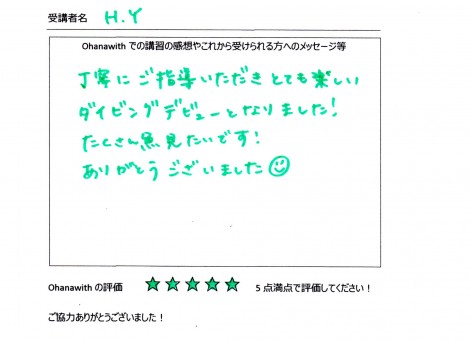 受講者名 H.Y
Ohanawith での講習の感想やこれから受けられる方へのメッセージ等
丁寧にご指導いただきとても楽しい
ダイビングデビューとなりました!
たくさん魚見たいです!
ありがとうございました☺
Ohanawith の評価 ★★★★★ 5 点満点で評価してください！
ご協力ありがとうございました！